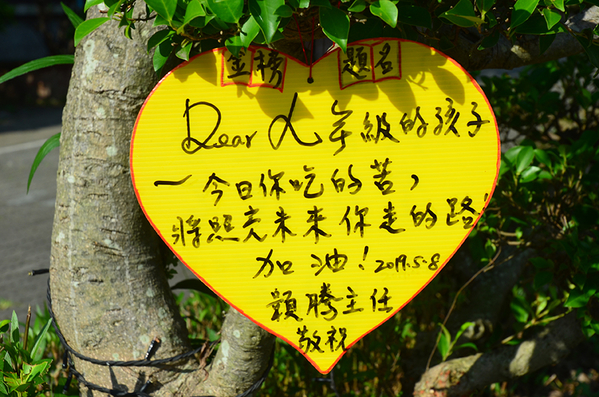 金榜 題名
Dear 九年級的孩子
一今日你吃的苦,
將照亮未來你走的路!
加油! 2019.5.8
賴騰主任
敬祝